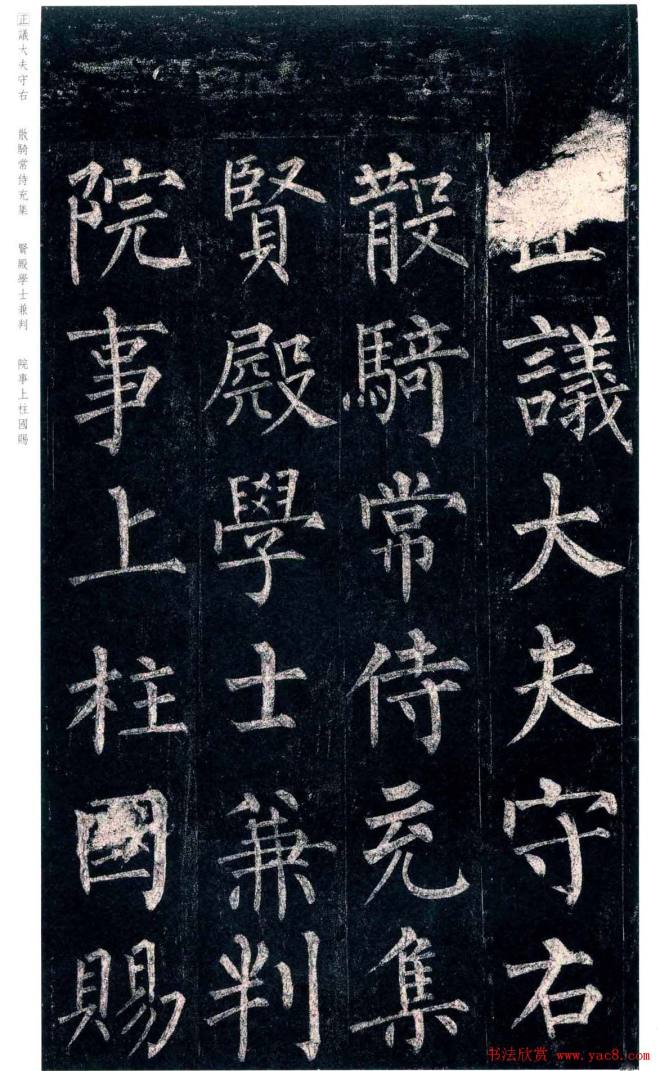 正議大夫守右
散騎常侍充集
賢殿學士兼判
院事上柱國賜
正議大夫守右　散騎常侍充集　賢殿學士兼判　院事上柱國賜
书法欣赏 www.yac8.com